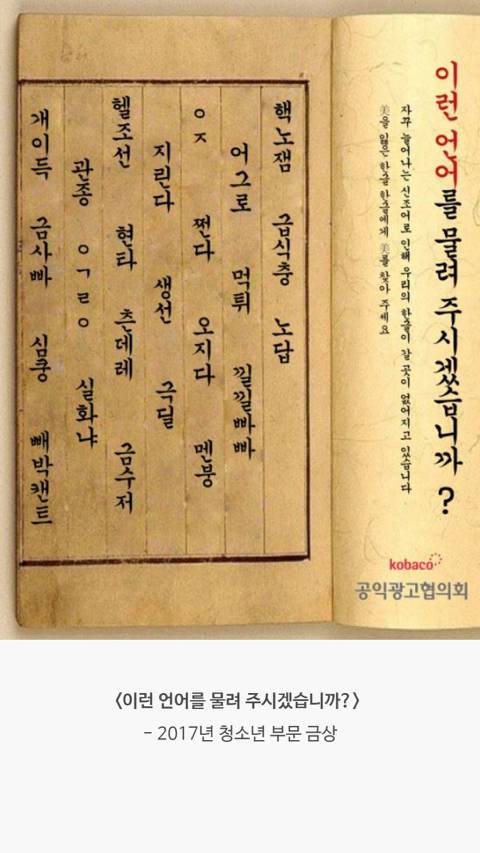 이런 언어를 물려 주시겠습니까?
자꾸 늘어나는 신조어로 인해 우리의 한글이 갈 곳이 없어지고 있습니다
美을 잃은 한글 한글에게 美를 찾아 주세요
핵노잼 급식충 노답
어그로 먹튀 낄낄빠빠
ㅇㅈ 쩐다 오지다 멘붕
지린다 생선 극딜
헬조선 현타 츤데레 금수저
관종 ㅇㄱㄹㅇ 실화냐
개이득 금사빠 심쿵 빼박캔트
kobaco
공익광고협의회
<이런 언어를 물려 주시겠습니까?>
- 2017년 청소년 부문 금상